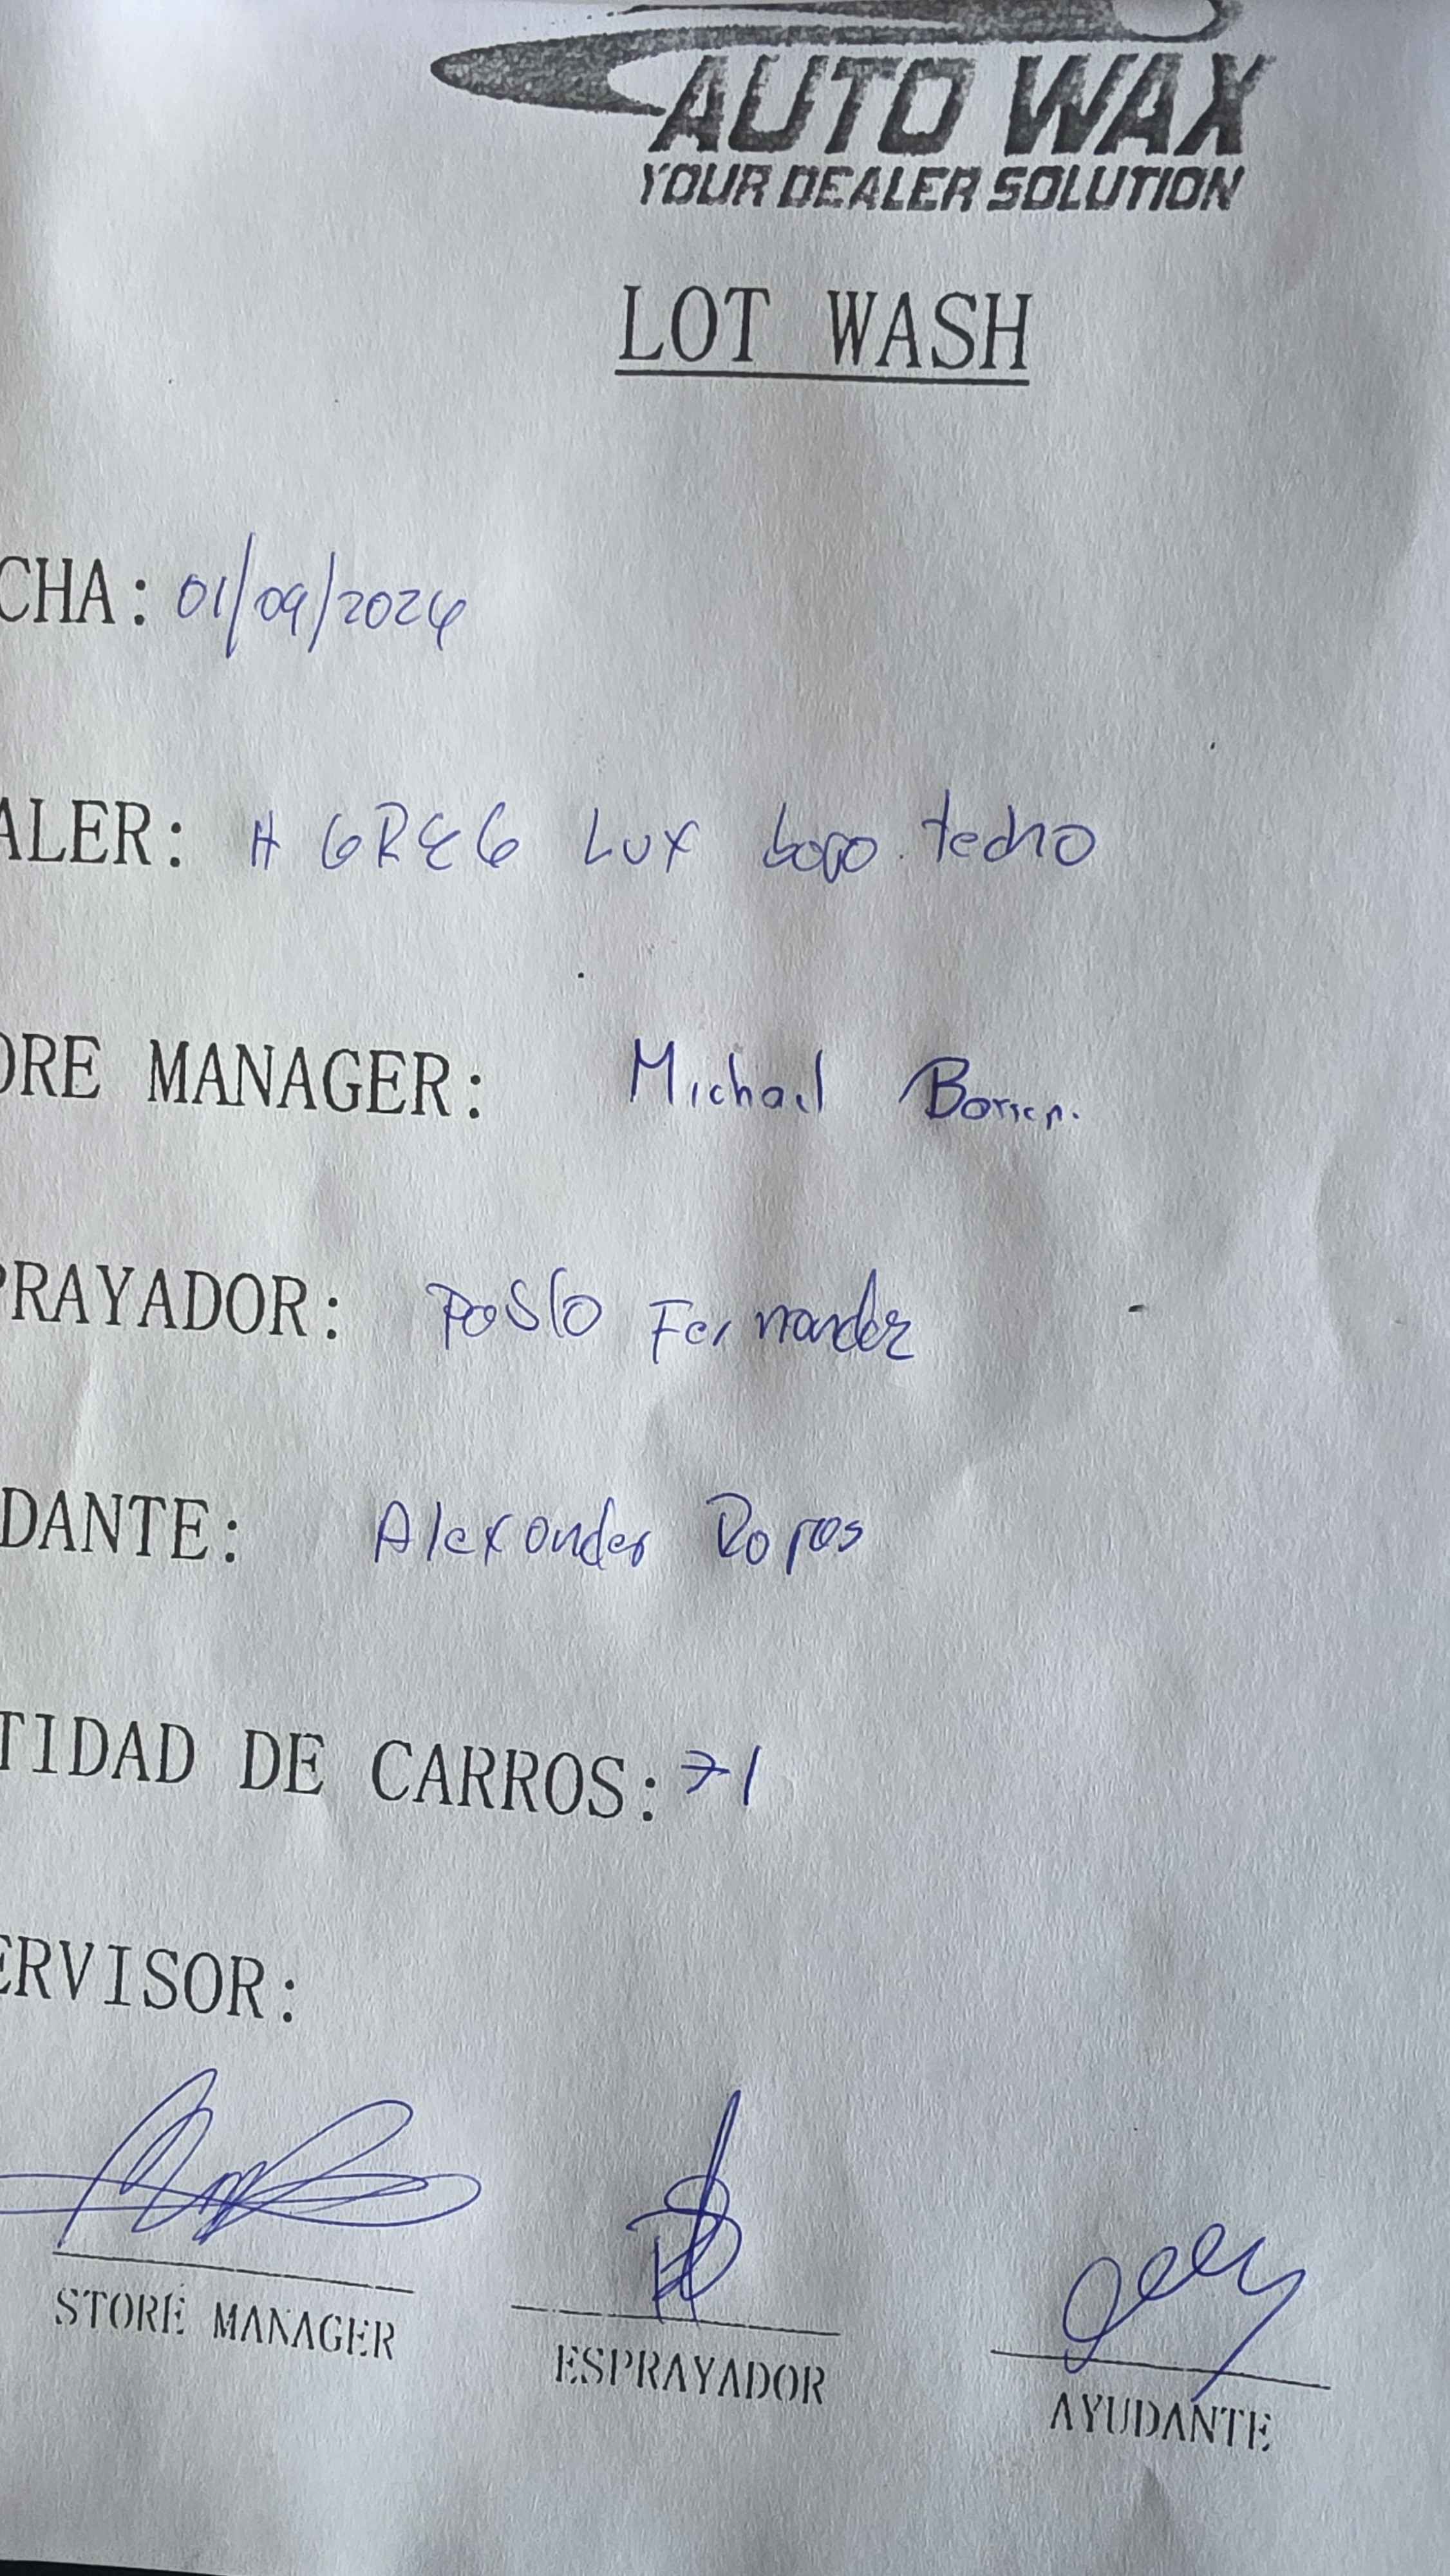 AUTO WAX
YOUR DEALER SOLUTION
LOT WASH
CHA: 01/09/2024
ALER: H GREG Lux bajo techo
ORE MANAGER: Michael
PRAYADOR: Pablo Fernandez
DANTE: Alexander Rojas
TIDAD DE CARROS: 71
ERVISOR:
STORE MANAGER
ESPRAYADOR
AYUDANTE